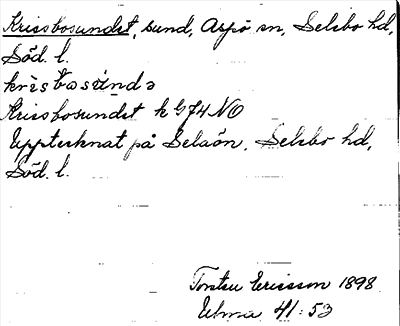 Krissbosundet, sund, Aspö sn, Selebo hd,
Söd. l.
krìsbosúndə
Krissbosundet k G74NO
Upptecknat på Selaön, Selebo hd,
Söd. l.
Torsten Ericsson 1898
Ulma 41:53